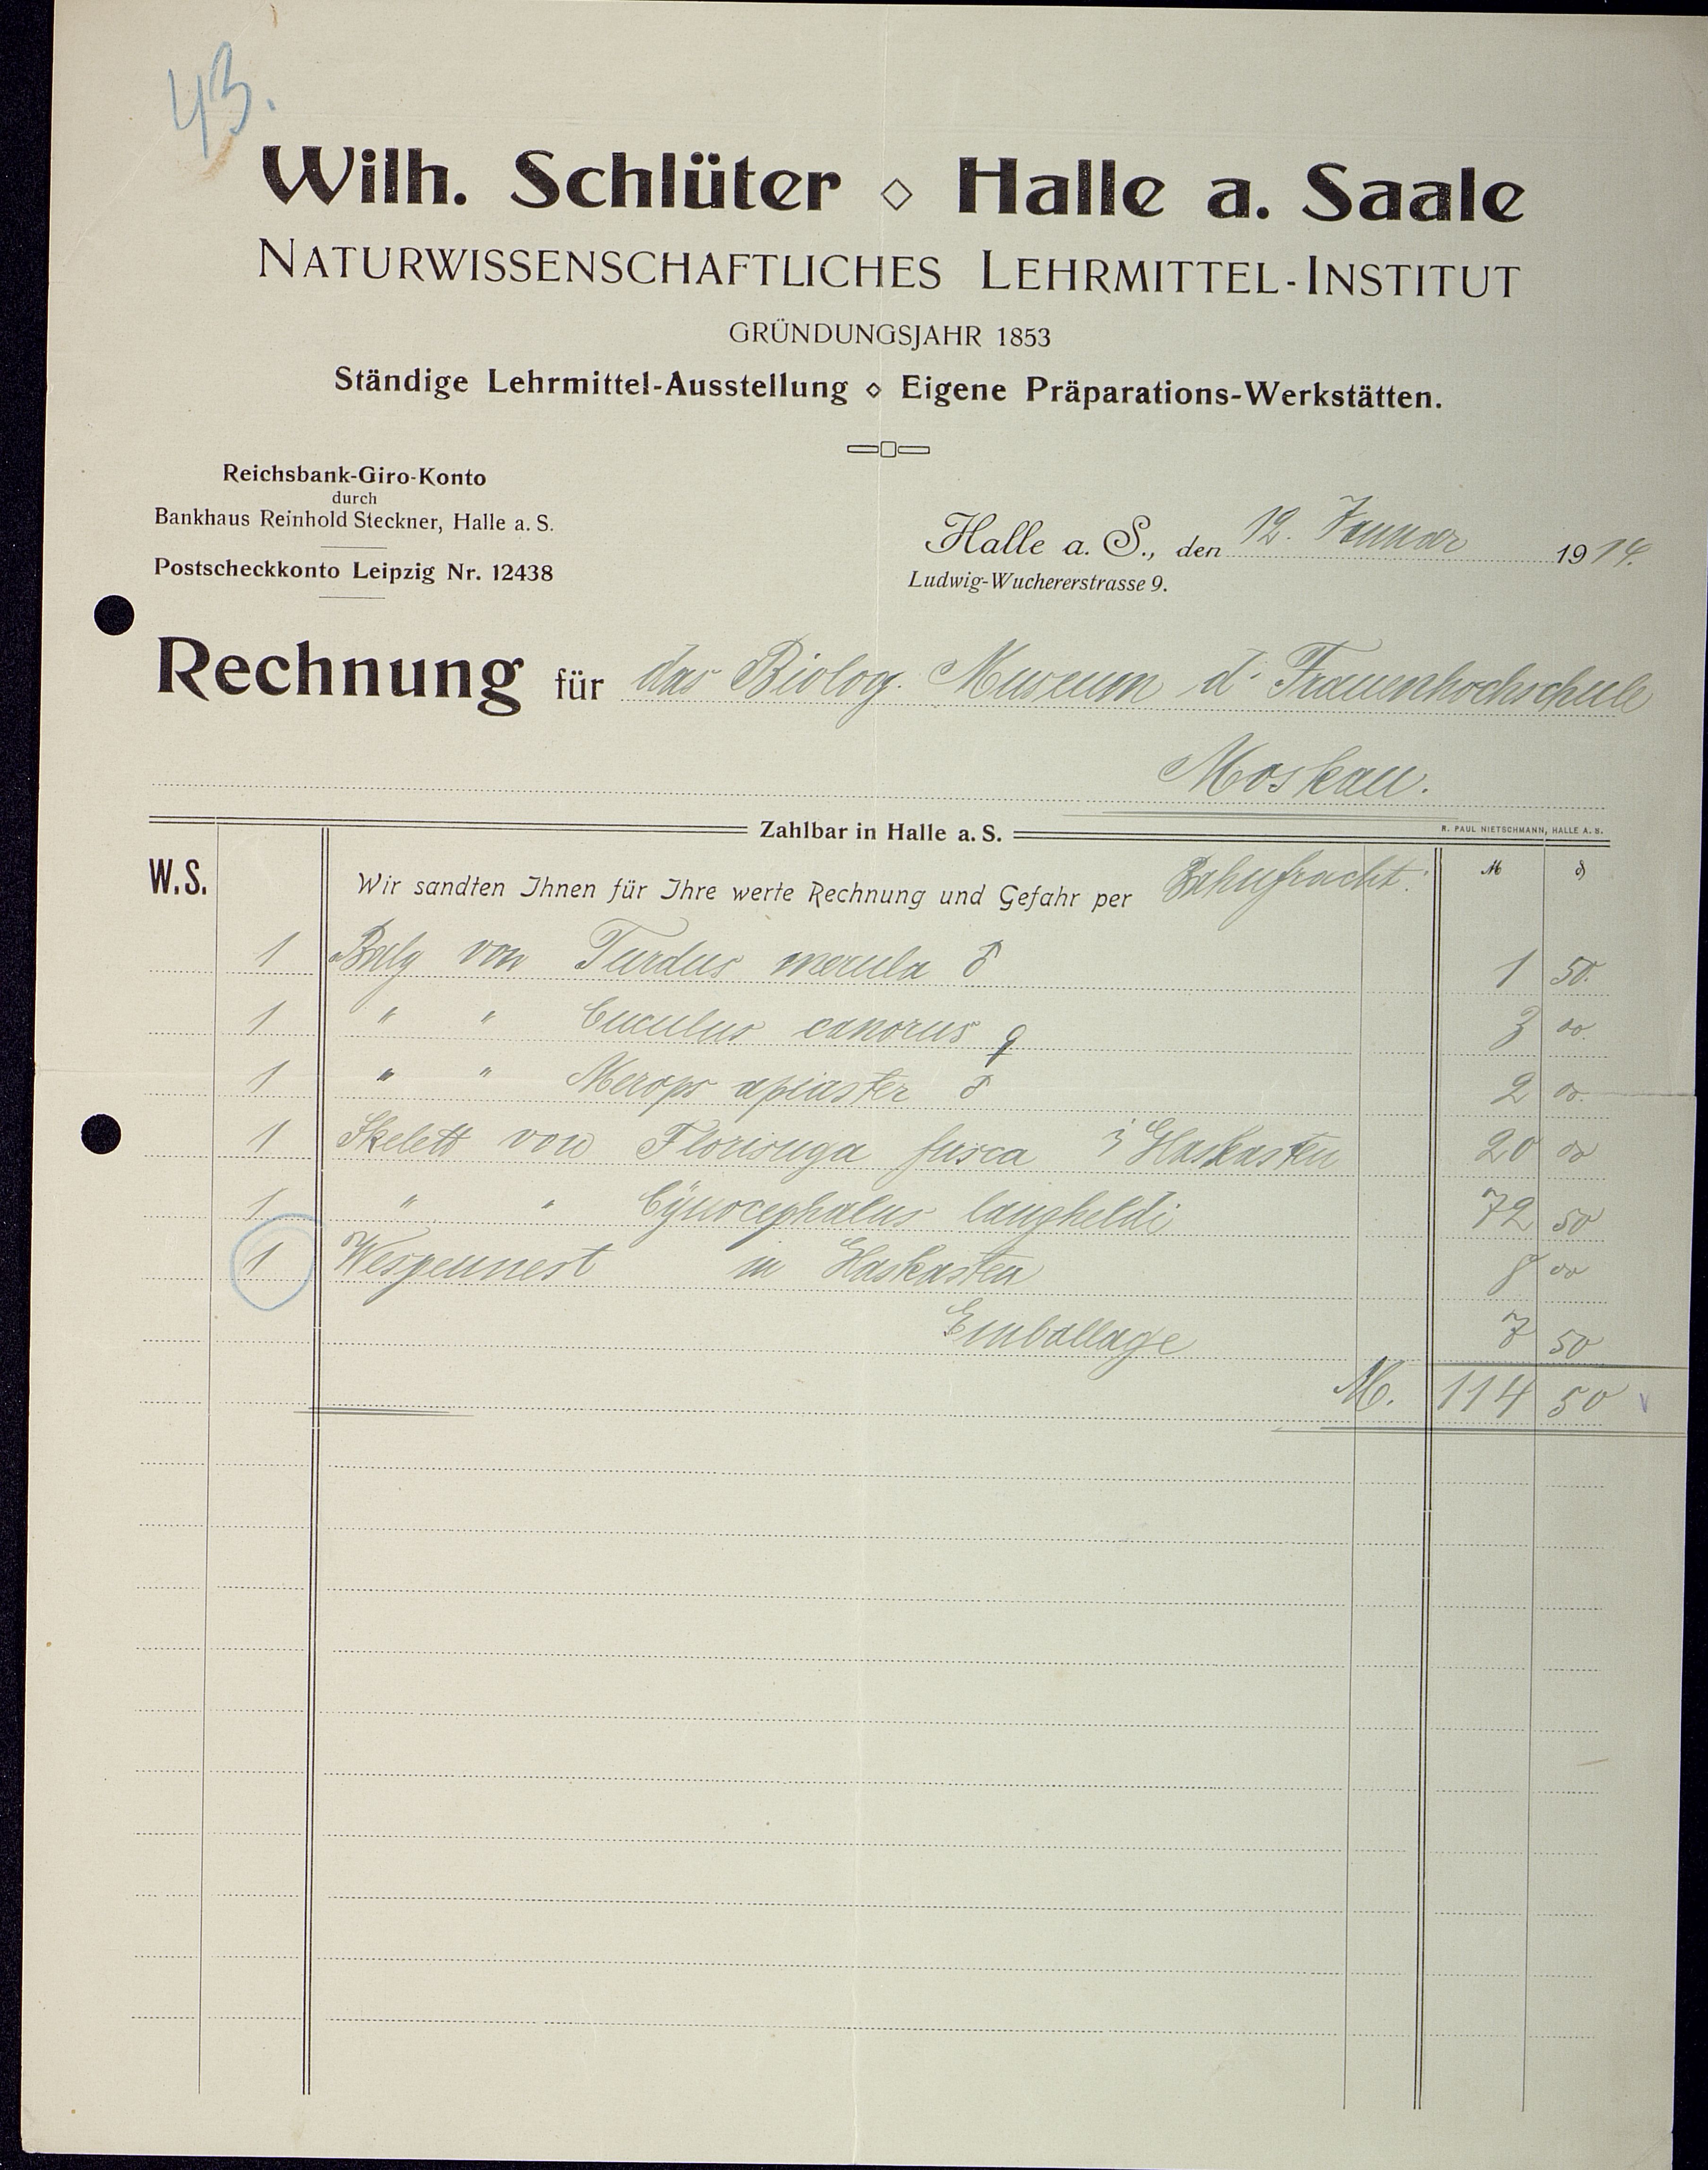 43.
Wilh. Schlüter ◇ Halle a. Saale
NATURWISSENSCHAFTLICHES LEHRMITTEL-INSTITUT
GRÜNDUNGSJAHR 1853
Ständige Lehrmittel-Ausstellung ◇ Eigene Präparations-Werkstätten.
Reichsbank-Giro-Konto
durch
Bankhaus Reinhold Steckner, Halle a. S.
Postscheckkonto Leipzig Nr. 12438
Halle a. S., den 12. Januar 1914.
Ludwig-Wuchererstrasse 9.
Rechnung für das Biolog. Museum d. Frauenhochschule
Moskau.
Zahlbar in Halle a. S.
R. PAUL NIETSCHMANN, HALLE A. S.
W.S. Wir sandten Ihnen für Ihre werte Rechnung und Gefahr per Bahnfracht. M ₰
1 Balg von Turdus merula ♂ 1 50.
1 " " Cuculus canorus ♀ 3 00.
1 " " Merops apiaster ♂ 2 00.
1 Skelett von Florisuga fusca i Glaskasten 20 00
1 " " Cynocephalus langheldi 72 50
1 Wespennest in Glaskasten 8 00
Emballage 7 50
M. 114 50